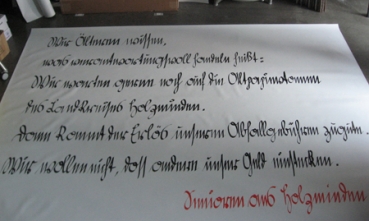 Wir Älteren wissen,
was verantwortungsvoll handeln heißt:
Wir warten gerne noch auf die Altpapiertonnen
des Landkreises Holzminden.
dann kommt der Erlös unseren Abfallgebühren zugute.
Wir wollen nicht, dass andere unser Geld einstecken.
Senioren aus Holzminden